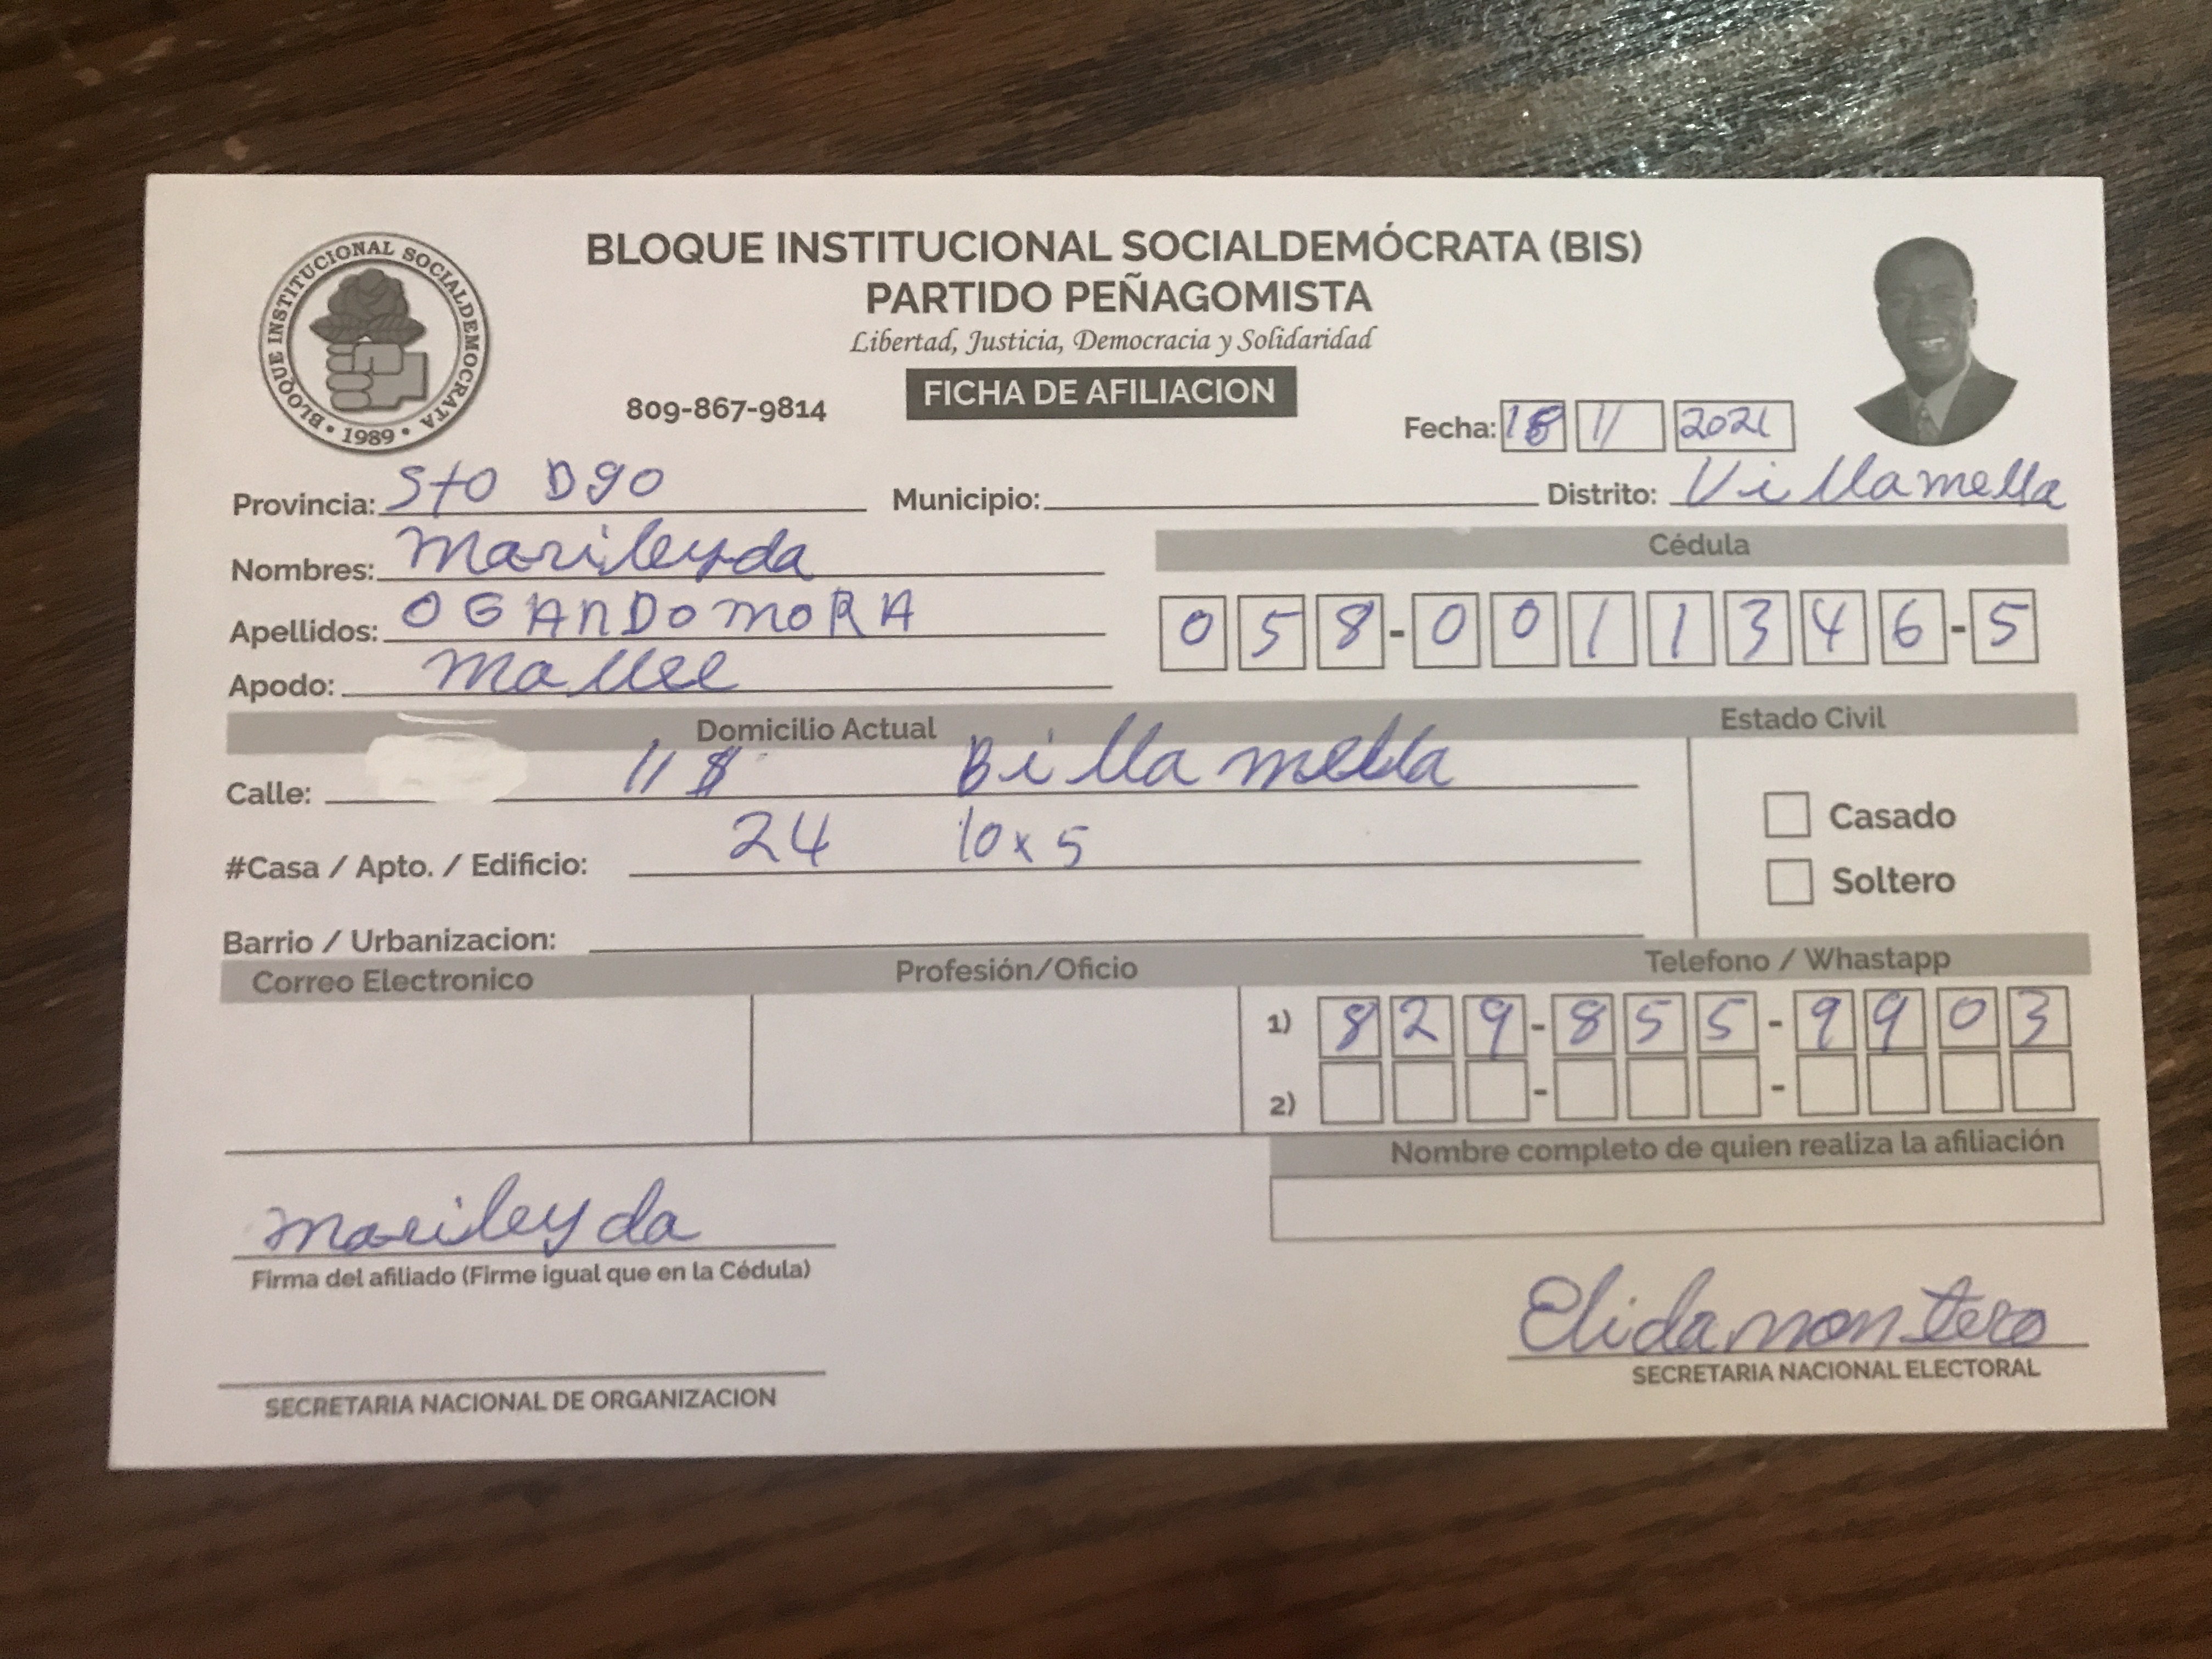 BLOQUE INSTITUCIONAL SOCIALDEMÓCRATA (BIS)
PARTIDO PEÑAGOMISTA
Libertad, Justicia, Democracia y Solidaridad
BLOQUE INSTITUCIONAL SOCIALDEMOCRATA • 1989 •
809-867-9814
FICHA DE AFILIACION
Fecha: 11 2021
Provincia: Sto Dgo Municipio: Distrito: Villamella
Nombres: Marileyda
Cédula
Apellidos: OGANDO MORA
058-0011346-5
Apodo:
Domicilio Actual Estado Civil
Calle: 11 Billa mella
Casado
#Casa / Apto. / Edificio: 24 10x5
Soltero
Barrio / Urbanizacion:
Correo Electronico Profesión/Oficio Telefono / Whastapp
1) 829-855-9903
2) - -
Nombre completo de quien realiza la afiliación
marileyda
Firma del afiliado (Firme igual que en la Cédula)
Elida montero
SECRETARIA NACIONAL ELECTORAL
SECRETARIA NACIONAL DE ORGANIZACION